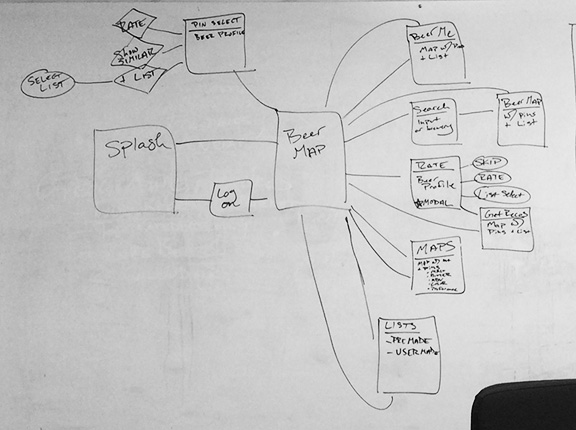 RATE
SHOW
SIMILAR
+ LIST
SELECT
LIST
PIN SELECT
BEER PROFILE
Splash
Log
on
Beer
MAP
Beer Me
MAP w/ Pins
+ List
Search
Input
or
Beer MAP
w/ Pins
+ List
RATE
Beer
Profile
*MODAL
SKIP
RATE
List Select
Get Recos
Map w/
Pins + List
MAPS
LISTS
- PREMADE
- USERMADE